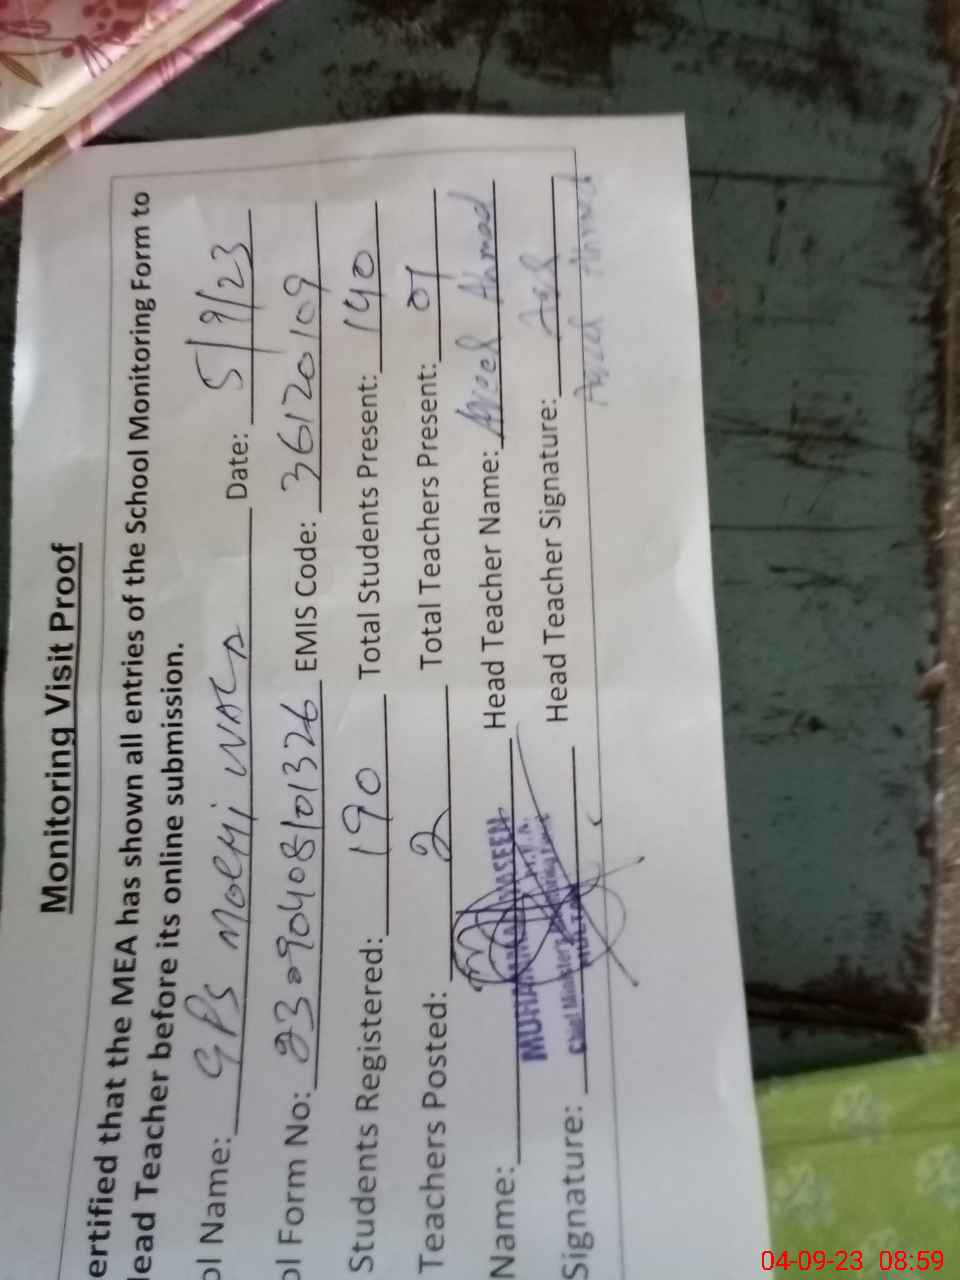 Monitoring Visit Proof
ertified that the MEA has shown all entries of the School Monitoring Form to
lead Teacher before its online submission.
ol Name: GPS Molhi Wala Date: 5/9/23
ol Form No: EMIS Code: 36120109
Students Registered: 190 Total Students Present: 140
Teachers Posted: 2 Total Teachers Present: 01
Name: MUHAMMAD WASEEM Head Teacher Name: Aqeel Ahmad
Signature: Chief Minister's Head Teacher Signature:
04-09-23 08:59